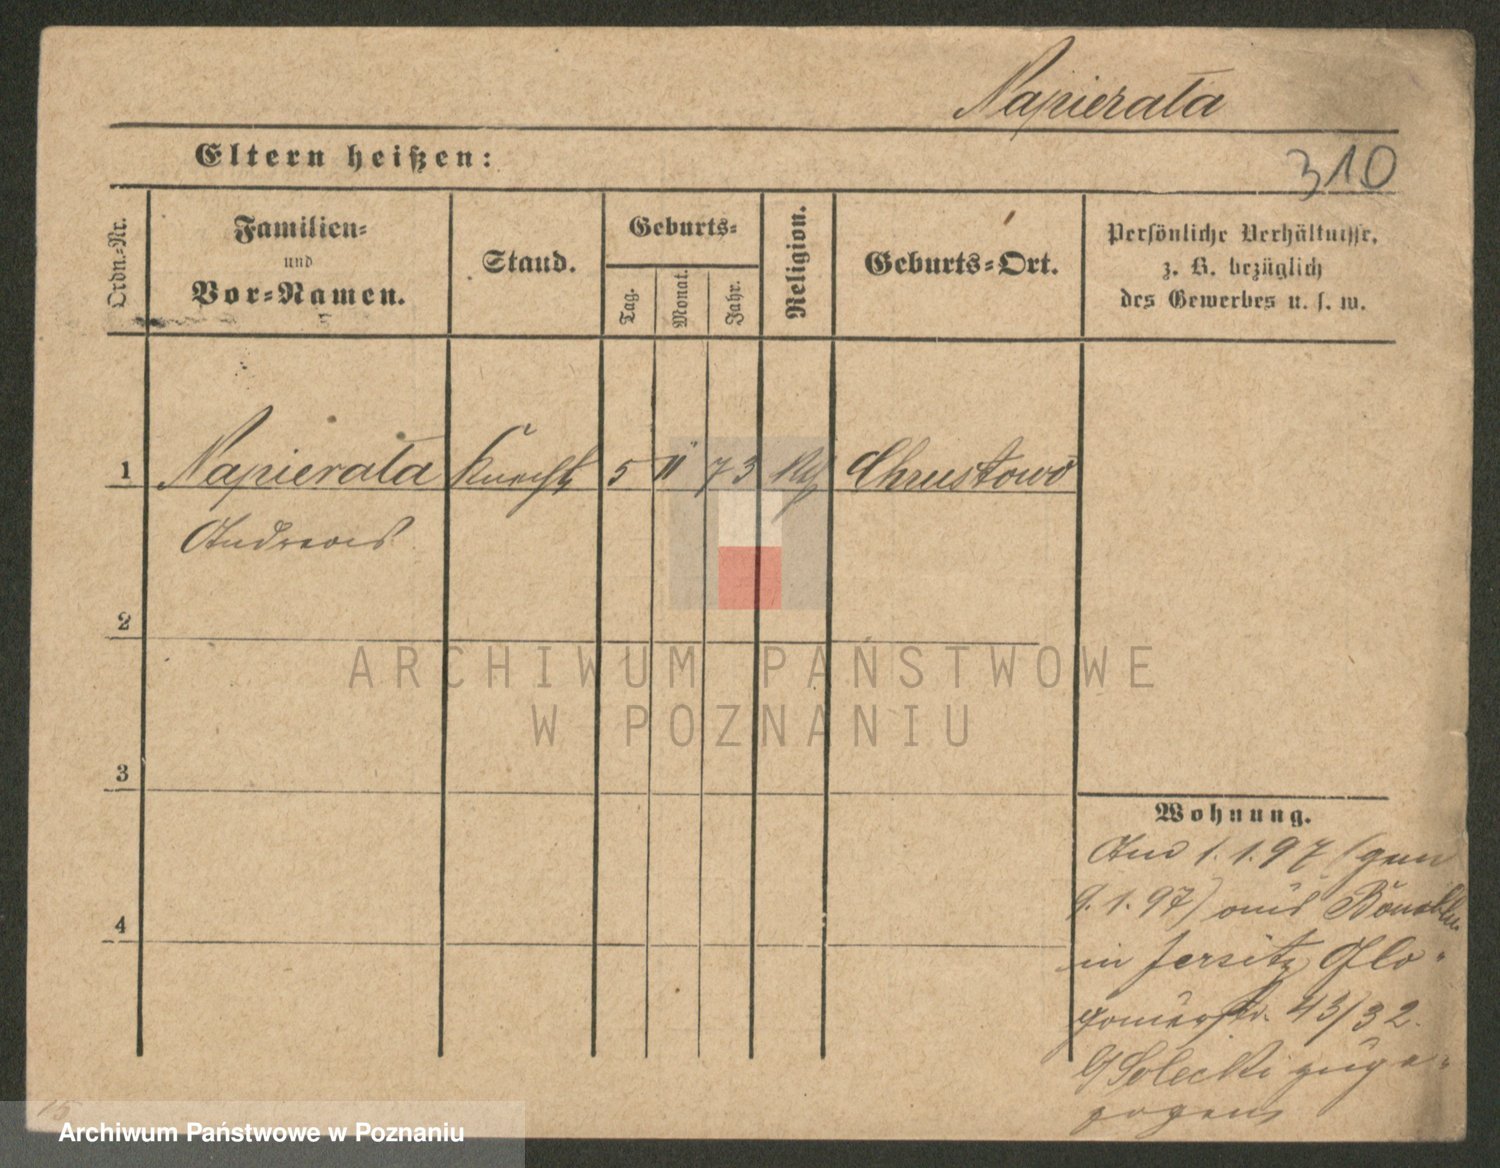 Napierała
Eltern heißen:
310
Ordn.-Nr.
Familien-
und
Vor-Namen.
Stand.
Geburts-
Tag.
Monat.
Jahr.
Religion.
Geburts-Ort.
Persönliche Verhältnisse,
z. B. bezüglich
des Gewerbes u. s. w.
1 Napierała Knecht 5 11 73 Chrustowo
Andreas
2
ARCHIWUM PAŃSTWOWE
W POZNANIU
3
4
Wohnung.
Am 1.1.97 (gem
9.1.97) aus
in Jersitz Glo-
gauerstr. 43/32
b/ Solecki zuge-
zogen
15
Archiwum Państwowe w Poznaniu